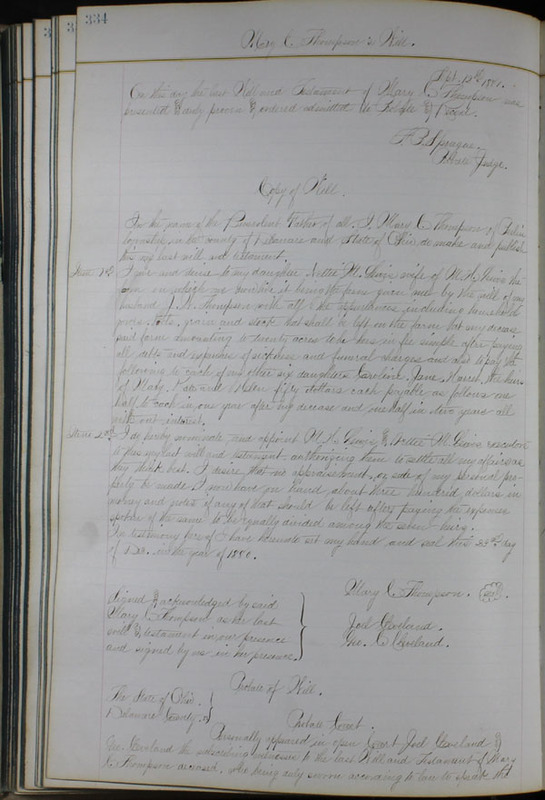 334
Mary C. Thompson's Will.
Feb. 12th 1881.
On this day the last Will and Testament of Mary C. Thompson was
presented & duly proven & ordered admitted to Probate & Record.
F. B. Sprague.
Probate Judge.
Copy of Will.
In the name of the Benevolent Father of all. I, Mary C. Thompson, of
township in the County of Delaware and State of Ohio do make and publish
this my last will and testament.
Item 1st I give and devise to my daughter Nettie M. wife of M. H. the
farm on which we now live it being the farm given me by the will of my
husband J. H. Thompson with all the appurtenances, including household
goods, tools, grain and stock that shall be left on the farm at my decease
said farm amounting to twenty acres to be hers in fee simple after paying
all debts and expenses of sickness and funeral charges and also to pay the
following to each of my other six daughters Caroline, Jane, Harriet, the heirs
of Mary, Kate and Helen fifty dollars each payable as follows one
half to each in one year after my decease and one half in two years all
without interest.
Item 2nd I do hereby nominate and appoint M. H. & Nettie M. executors
of this my last will and testament, authorizing them to settle all my affairs as
they think best. I desire that no appraisement or sale of my personal pro-
perty be made. I now have on hand about three hundred dollars in
money and notes if any of that should be left after paying the expenses
spoken of the same to be equally divided among the seven heirs.
In testimony hereof I have hereunto set my hand and seal this 23rd day
of Dec. in the year of 1880.
Mary C. Thompson. seal.
Signed & acknowledged by said
Mary C. Thompson as her last
will & testament in our presence
and signed by us in her presence.
Joel Cleveland.
Geo. C. Cleveland.
Probate of Will.
The State of Ohio.
Delaware County. ss
Probate Court.
Personally appeared in open Court Joel Cleveland &
Geo. Cleveland the subscribing witnesses to the last Will and Testament of Mary
C. Thompson deceased, who being duly sworn according to law to speak the